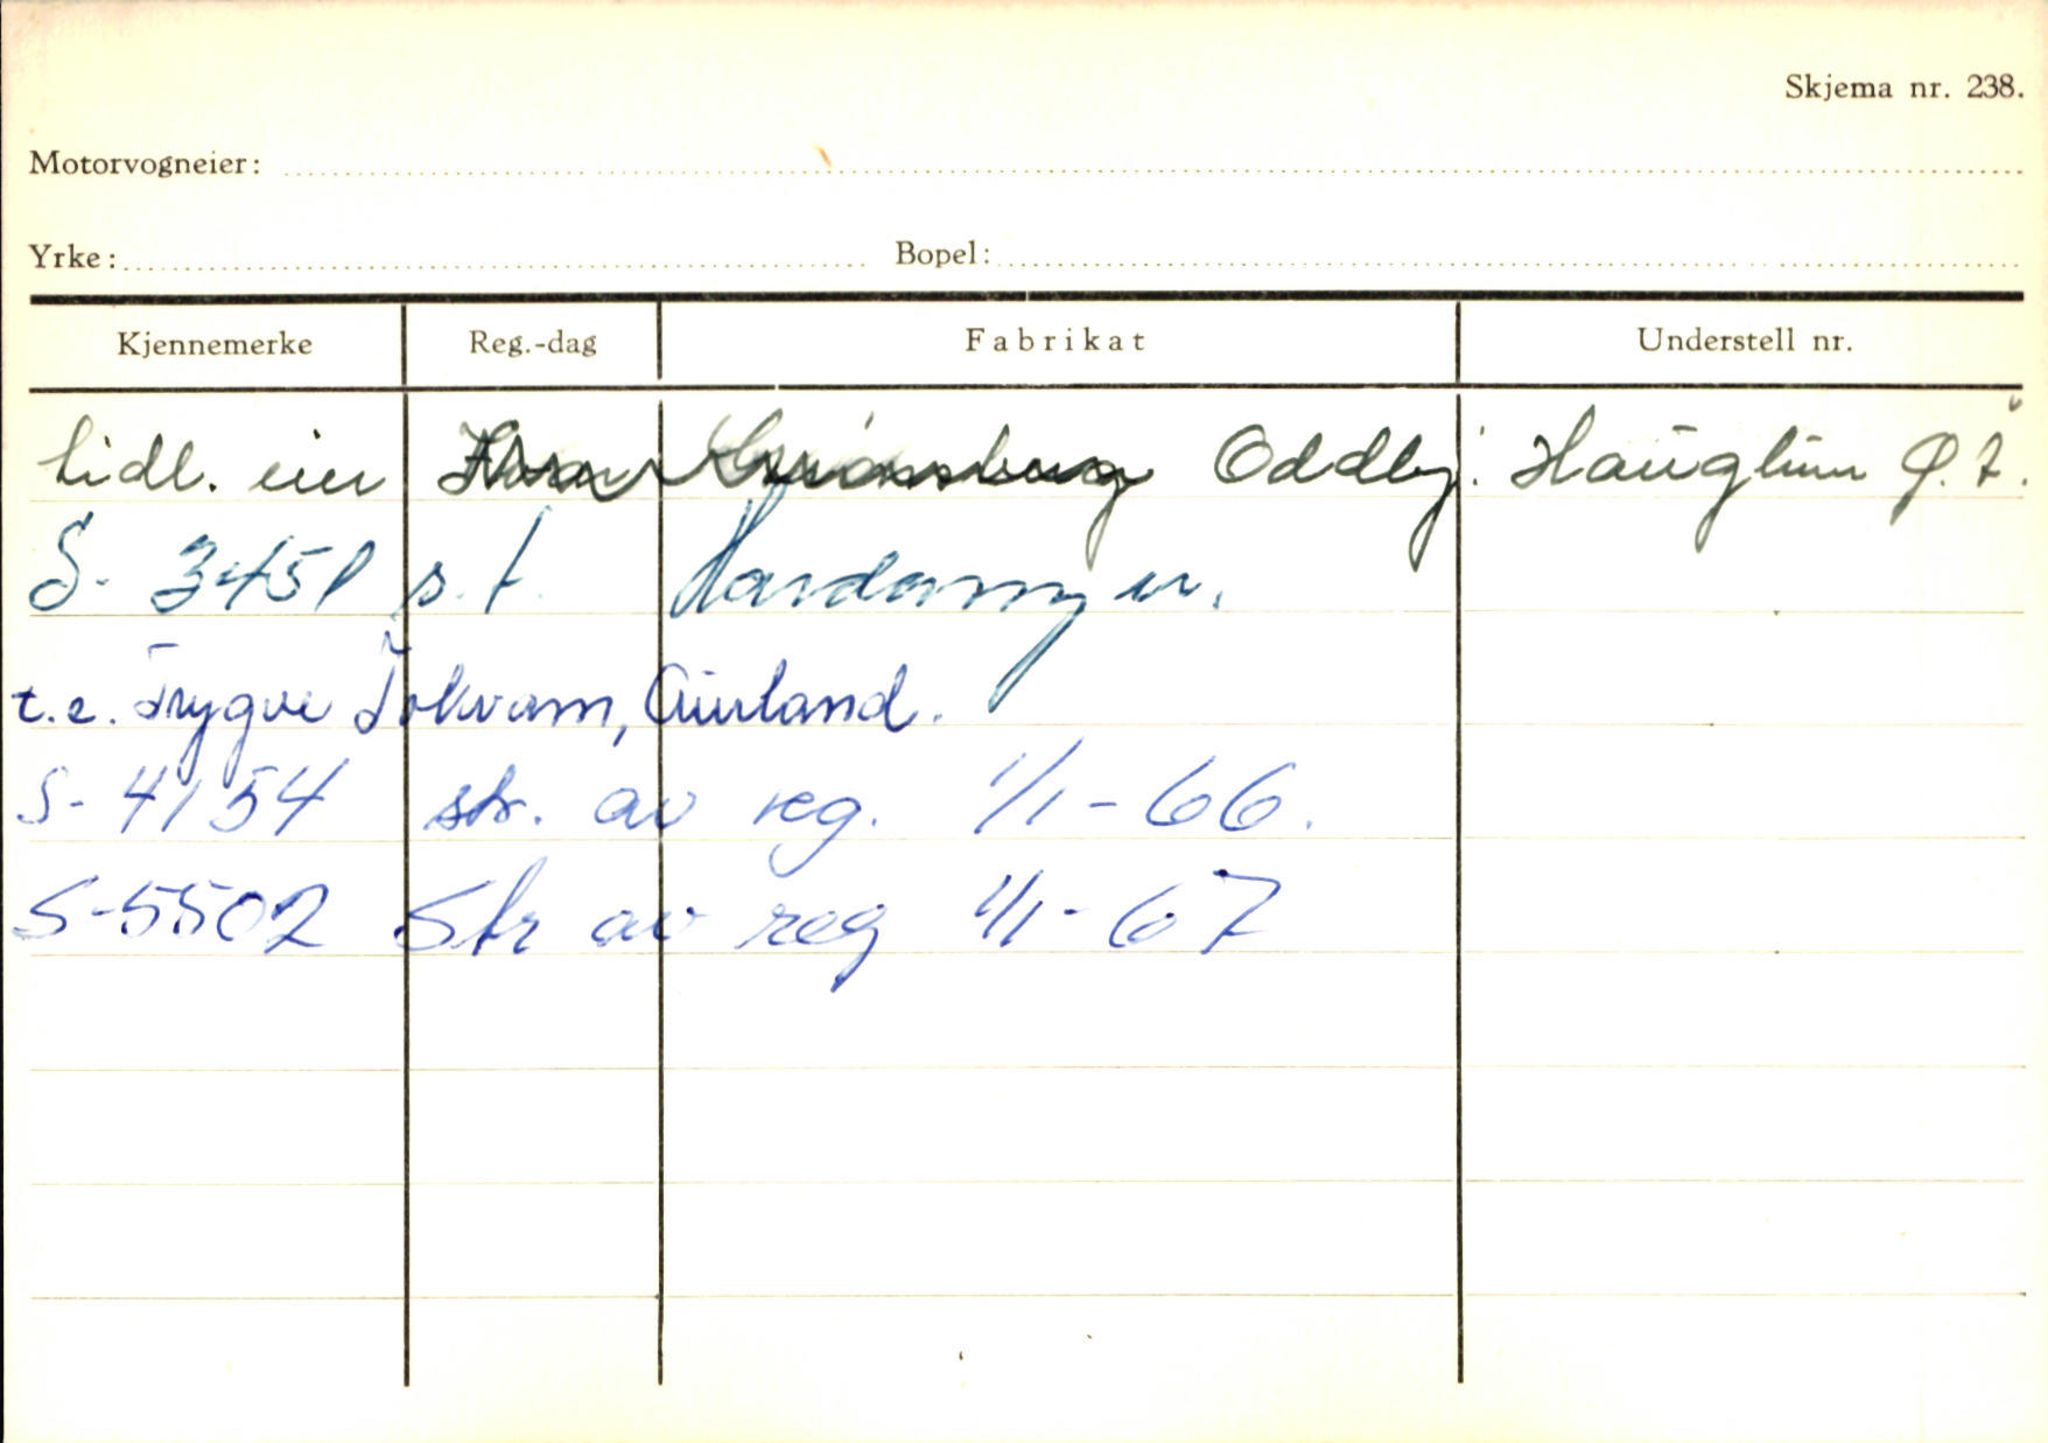 Skjema nr. 238.
Motorvogneier:
Yrke: Bopel:
Kjennemerke Reg.-dag Fabrikat Understell nr.
tidl. eier Oddbj. Hauglum Ø.å.
S- 3451 s.f. Hardanger.
t.e. Trygve Tokvam, Aurland.
S- 4154 str. av reg. 1/1-66.
S-5502 Str av reg 1/1-67